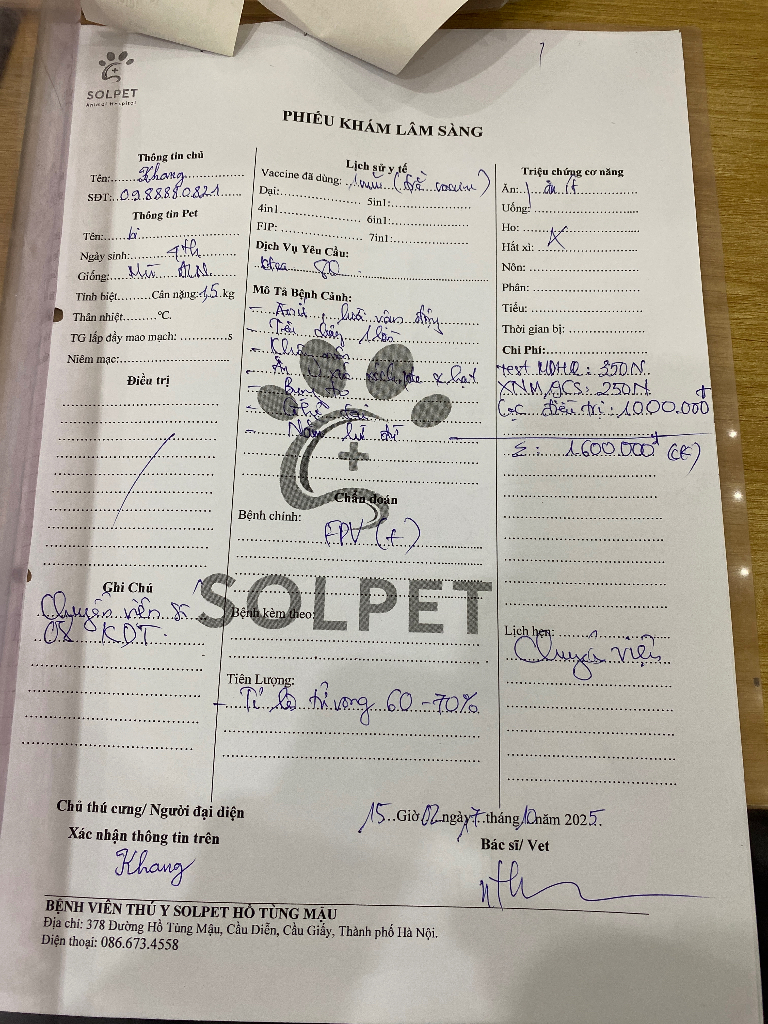 SOLPET
Animal Hospital
PHIẾU KHÁM LÂM SÀNG
Thông tin chủ
Tên: Khang
SĐT: 0988880821
Thông tin Pet
Tên: bi
Ngày sinh: 4th
Giống: Mũ
Tính biệt Cân nặng: 1,5 kg
Thân nhiệt °C.
TG lấp đầy mao mạch: s
Niêm mạc:
Điều trị
Ghi Chú
Chuyển viện
KDT
Lịch sử y tế
Vaccine đã dùng: 1 mũi ( vaccine)
Dại: 5in1:
4in1 6in1:
FIP: 7in1:
Dịch Vụ Yêu Cầu:
Mô Tả Bệnh Cảnh:
- vận động
- Tiêu chảy 1 lần
- Ăn hạt
- Nằm lừ đừ
Chẩn đoán
Bệnh chính:
FPV (+)
Bệnh kèm theo:
Tiên Lượng:
- Tỉ lệ tử vong 60 - 70%
Triệu chứng cơ năng
Ăn: ăn ít
Uống:
Ho:
Hắt xì: X
Nôn:
Phân:
Tiểu:
Thời gian bị:
Chi Phí:
test : 350N
XNM : 250N
Cọc điều trị: 1.000.000đ
Σ: 1.600.000đ (CK)
Lịch hẹn:
Chuyển viện
15 Giờ 02 ngày 7 tháng 10 năm 2025
Chủ thú cưng/ Người đại diện
Xác nhận thông tin trên
Khang
Bác sĩ/ Vet
SOLPET
BỆNH VIỆN THÚ Y SOLPET HỒ TÙNG MẬU
Địa chỉ: 378 Đường Hồ Tùng Mậu, Cầu Diễn, Cầu Giấy, Thành phố Hà Nội.
Điện thoại: 086.673.4558